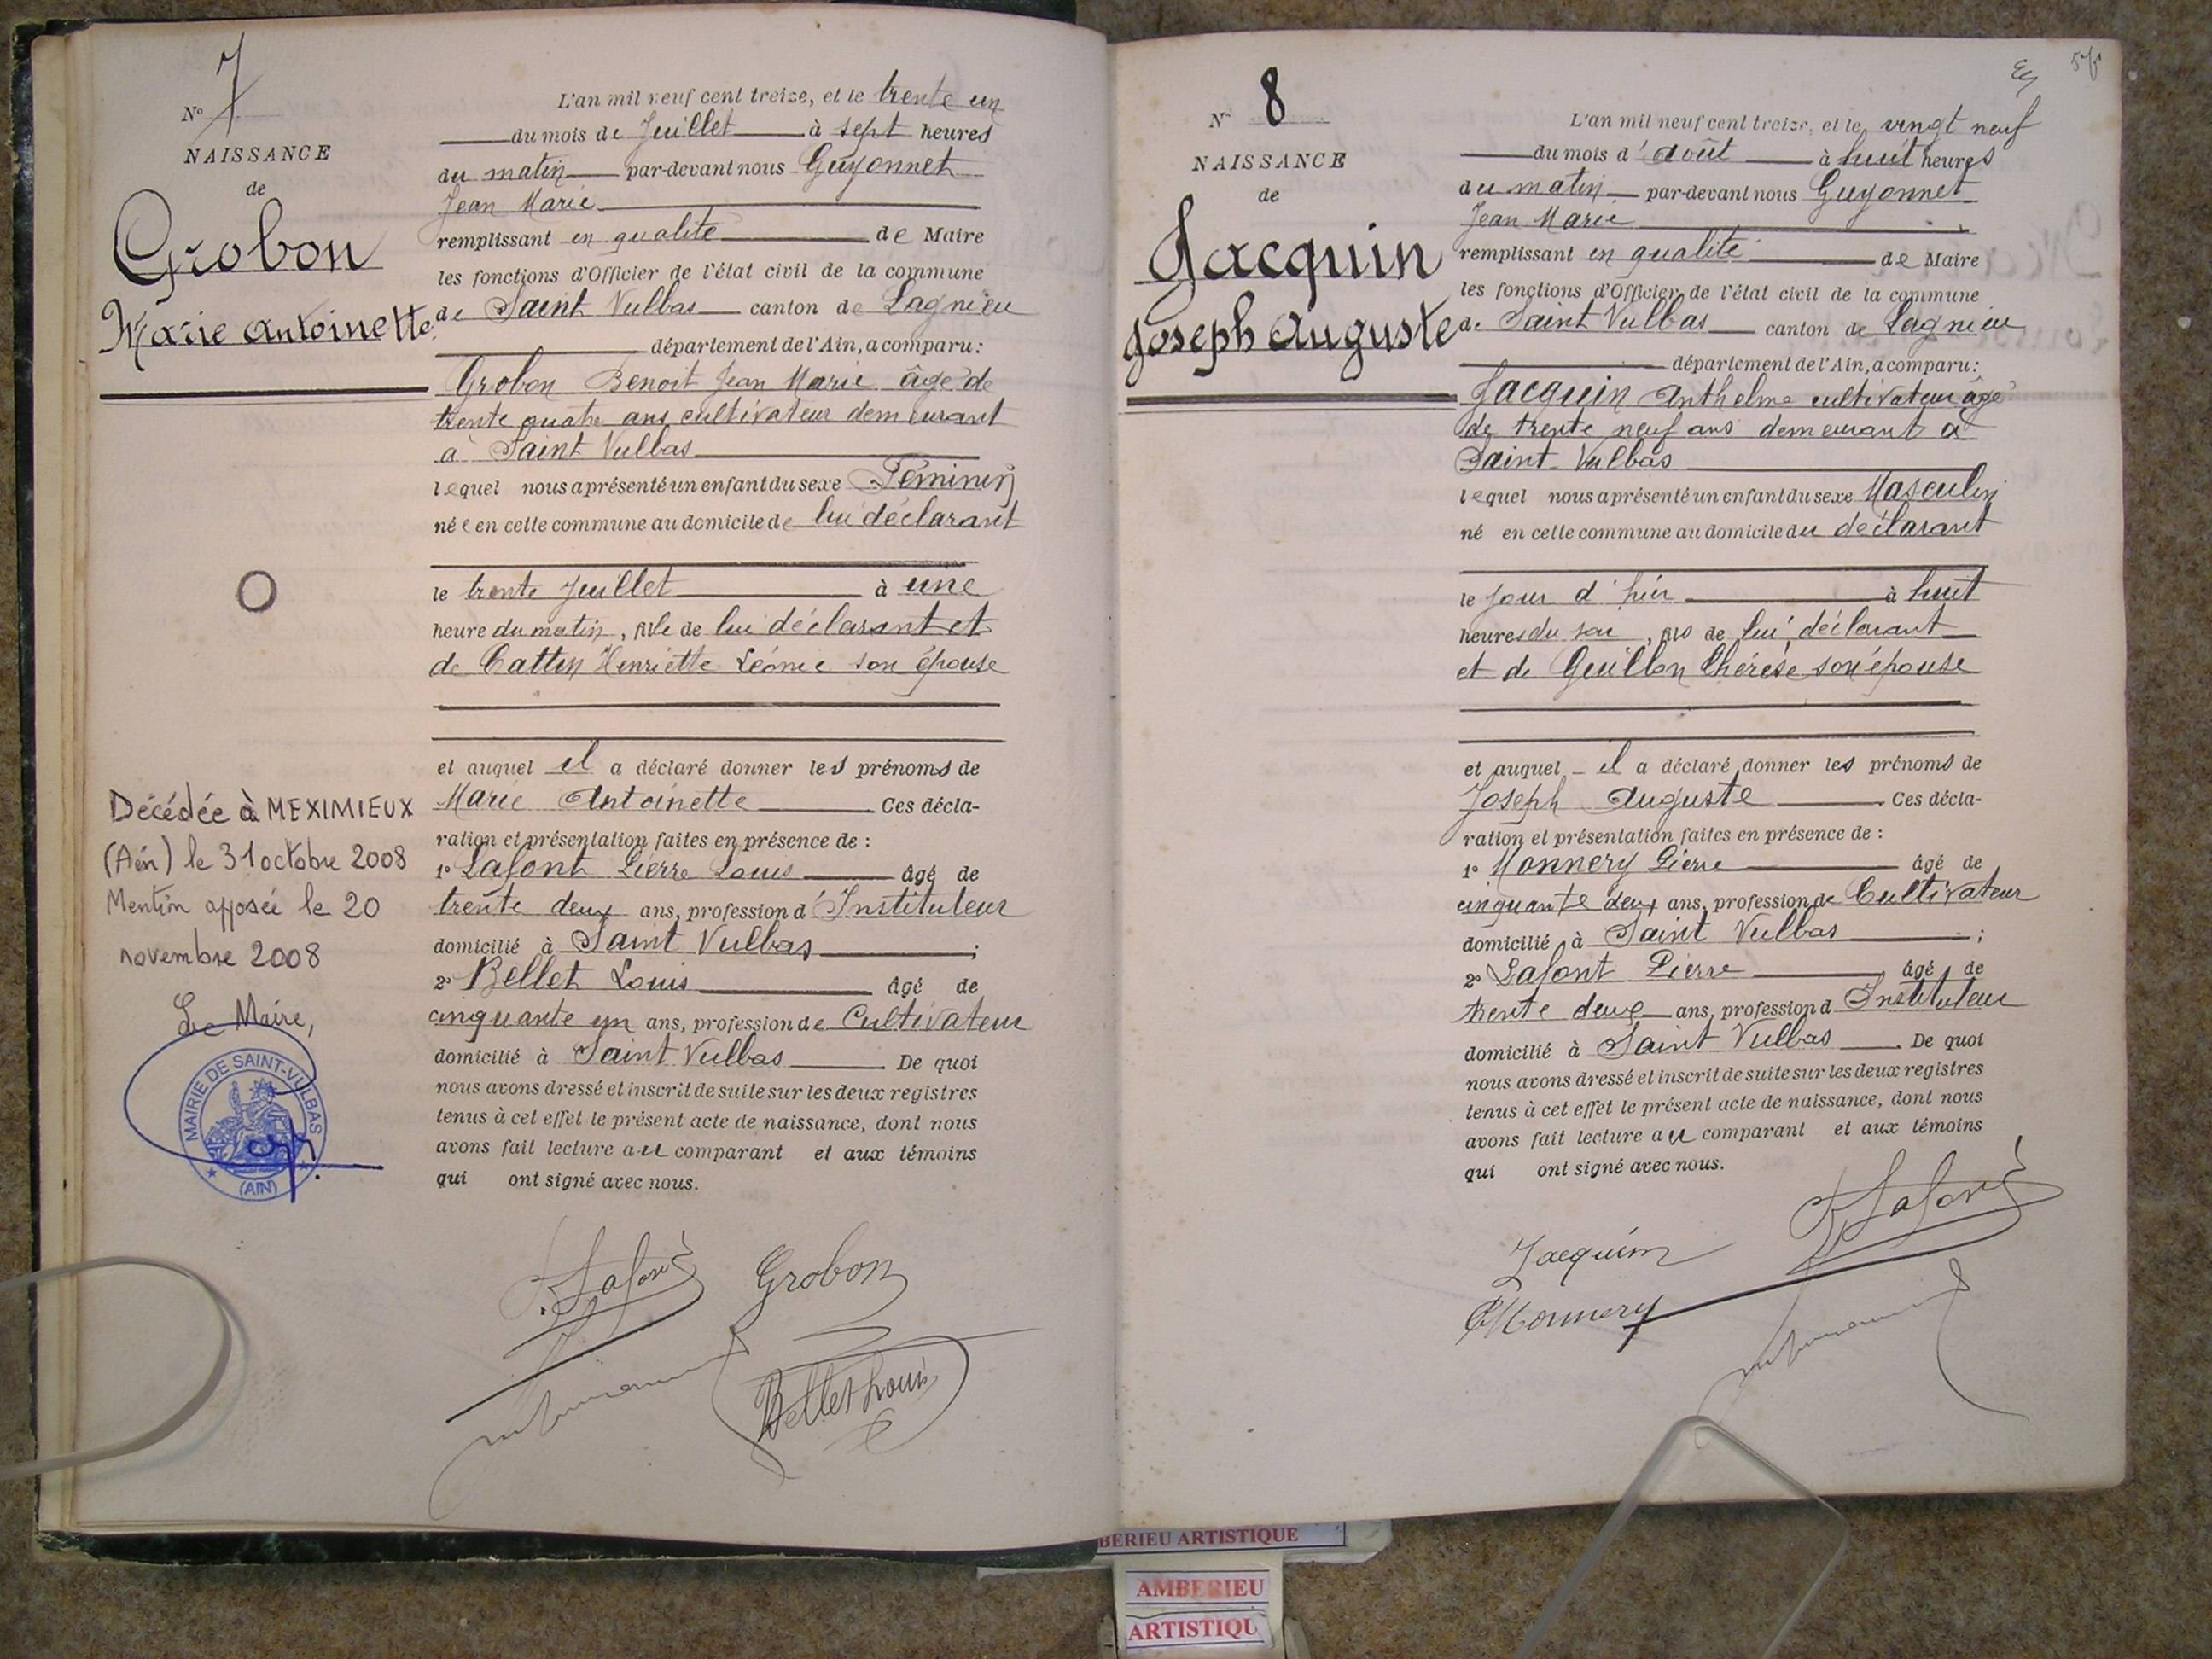 7
N° 7
NAISSANCE
de
Grobon
Marie Antoinette
L'an mil neuf cent treize, et le trente un
du mois de Juillet à sept heures
du matin par-devant nous Guyonnet
Jean Marie
remplissant en qualité de Maire
les fonctions d'Officier de l'état civil de la commune
de Saint Vulbas canton de Lagnieu
département de l'Ain, a comparu :
Grobon Benoit Jean Marie âgé de
trente quatre ans cultivateur demeurant
à Saint Vulbas
lequel nous a présenté un enfant du sexe Féminin
née en cette commune au domicile de lui déclarant
le trente Juillet à une
heure du matin, fille de lui déclarant et
de Cattin Henriette Léonie son épouse
et auquel il a déclaré donner les prénoms de
Marie Antoinette Ces décla-
ration et présentation faites en présence de :
1° Lafont Pierre Louis âgé de
trente deux ans, profession d'Instituteur
domicilié à Saint Vulbas ;
2° Bellet Louis âgé de
cinquante un ans, profession de Cultivateur
domicilié à Saint Vulbas De quoi
nous avons dressé et inscrit de suite sur les deux registres
tenus à cet effet le présent acte de naissance, dont nous
avons fait lecture au comparant et aux témoins
qui ont signé avec nous.
Décédée à MEXIMIEUX
(Ain) le 31 octobre 2008
Mention apposée le 20
novembre 2008
Le Maire,
MAIRIE DE SAINT-VULBAS
(AIN)
P. Lafont Grobon
Bellet Louis
N° 8
NAISSANCE
de
Jacquin
Joseph Auguste
L'an mil neuf cent treize, et le vingt neuf
du mois d'août à huit heures
du matin par-devant nous Guyonnet
Jean Marie
remplissant en qualité de Maire
les fonctions d'Officier de l'état civil de la commune
de Saint Vulbas canton de Lagnieu
département de l'Ain, a comparu :
Jacquin Anthelme cultivateur âgé
de trente neuf ans demeurant à
Saint-Vulbas
lequel nous a présenté un enfant du sexe Masculin
né en cette commune au domicile du déclarant
le jour d'hier à huit
heures du soir, fils de lui déclarant
et de Guillon Thérèse son épouse
et auquel il a déclaré donner les prénoms de
Joseph Auguste Ces décla-
ration et présentation faites en présence de :
1° Monnery Pierre âgé de
cinquante deux ans, profession de Cultivateur
domicilié à Saint Vulbas ;
2° Lafont Pierre âgé de
trente deux ans, profession d Instituteur
domicilié à Saint Vulbas . De quoi
nous avons dressé et inscrit de suite sur les deux registres
tenus à cet effet le présent acte de naissance, dont nous
avons fait lecture au comparant et aux témoins
qui ont signé avec nous.
Jacquin P. Lafont
Monnery
BERIEU ARTISTIQUE
AMBERIEU
ARTISTIQU